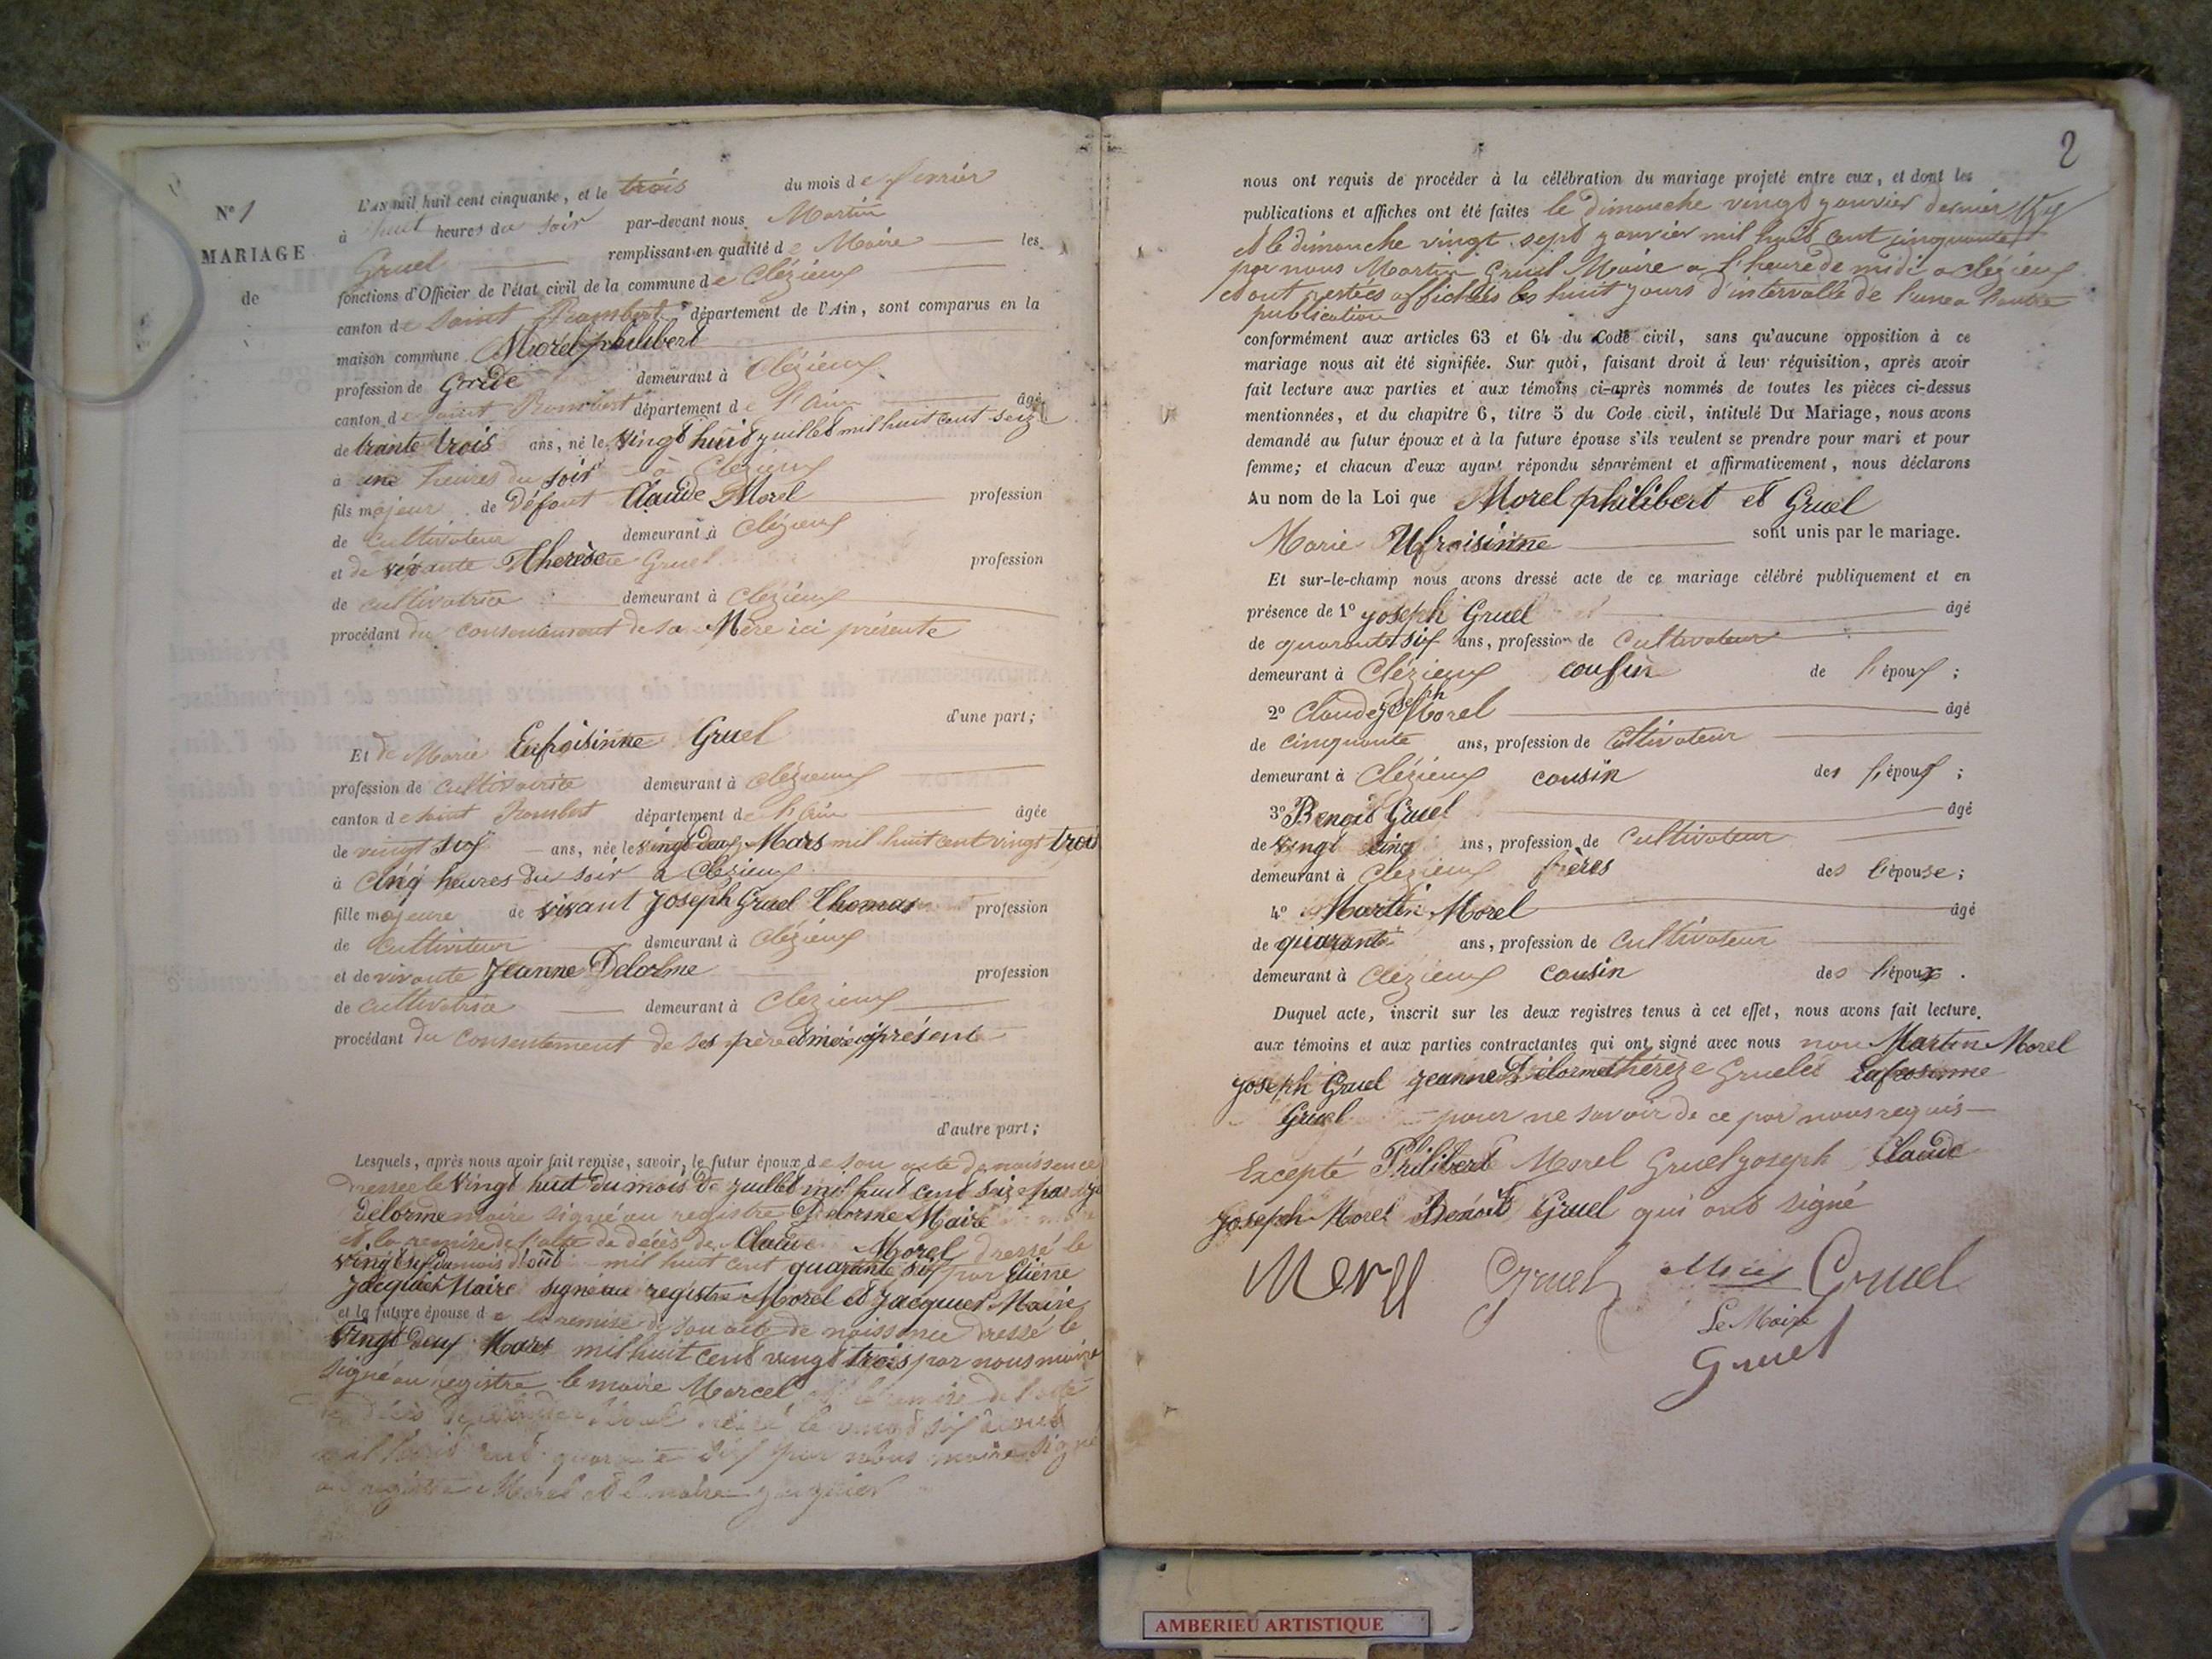 N° 1
MARIAGE
de
L'AN mil huit cent cinquante, et le trois du mois de fevrier
à huit heures du soir par-devant nous Martin
Gruel remplissant en qualité de Maire les
fonctions d'Officier de l'état civil de la commune de Clézieux
canton de saint Rambert département de l'Ain, sont comparus en la
maison commune Morel philibert
profession de Garde demeurant à Clézieux
canton de saint Rambert département de l'ain âgé
de trante trois ans, né le vingt huit juillet mil huit cent seize
à une heures du soir à Clézieux
fils majeur de Défunt Claude Morel profession
de Cultivateur demeurant à Clézieux
et de vivante Therèse Gruel profession
de cultivatrice demeurant à Clézieux
procédant du consentement de sa Mère ici présente
d'une part;
Et de Marie Eufroisinne Gruel
profession de cultivatrice demeurant à Clézieux
canton de saint Rambert département de l'ain âgée
de vingt six ans, née le vingt deux Mars mil huit cent vingt trois
à Cinq heures du soir à Clézieux
fille majeure de vivant Joseph Gruel Thomas profession
de Cultivateur demeurant à Clézieux
et de vivante Jeanne Delorme profession
de cultivatrice demeurant à Clézieux
procédant du consentement de ses père et mère ici présente
d'autre part;
Lesquels, après nous avoir fait remise, savoir, le futur époux de son acte de naissence
dressée le vingt huit du mois de juillet mil huit cent seize par
Delorme maire signé au registre Delorme Maire
et la remise de l'acte de décès de Claude Morel dressé le
vingt six du mois d'oût mil huit cent quarante six par Etiene
Jacquier Maire signé au registre Morel et Jacquier Maire
et la future épouse de la remise de son acte de naissence dressé le
vingt deux Mars mil huit cent vingt trois par nous maire
signé au registre le maire Marcel et la remise de l'acte
de décès de Morel le vingt six
mil huit cent quarante six par nous maire signé
au registre Morel et le maire jacquier
2
nous ont requis de procéder à la célébration du mariage projeté entre eux, et dont les
publications et affiches ont été faites le dimanche vingt janvier dernier
et le dimanche vingt sept janvier mil huit cent cinquante
par nous Martin Gruel Maire a l'heure de midi a clézieux
et ont restées affichées les huit jours d'intervalle de l'une a l'autre
publication
conformément aux articles 63 et 64 du Code civil, sans qu'aucune opposition à ce
mariage nous ait été signifiée. Sur quoi, faisant droit à leur réquisition, après avoir
fait lecture aux parties et aux témoins ci-après nommés de toutes les pièces ci-dessus
mentionnées, et du chapitre 6, titre 5 du Code civil, intitulé Du Mariage, nous avons
demandé au futur époux et à la future épouse s'ils veulent se prendre pour mari et pour
femme; et chacun d'eux ayant répondu séparément et affirmativement, nous déclarons
Au nom de la Loi que Morel philibert et Gruel
Marie Ufroisinne sont unis par le mariage.
Et sur-le-champ nous avons dressé acte de ce mariage célébré publiquement et en
présence de 1° Joseph Gruel âgé
de quarante six ans, profession de Cultivateur
demeurant à Clézieux cousin de l'époux ;
2° Claude Joseph Morel âgé
de cinquante ans, profession de Cultivateur
demeurant à Clézieux cousin des l'époux ;
3° Benoit Gruel âgé
de vingt cinq ans, profession de Cultivateur
demeurant à Clézieux frères des l'épouse ;
4° Martin Morel âgé
de quarante ans, profession de Cultivateur
demeurant à Clézieux cousin des l'époux .
Duquel acte, inscrit sur les deux registres tenus à cet effet, nous avons fait lecture
aux témoins et aux parties contractantes qui ont signé avec nous non Martin Morel
Joseph Gruel Jeanne Delorme thérèze Gruel et Eufrosinne
Gruel pour ne savoir de ce par nous requis
Excepté Philibert Morel Gruel joseph Claude
Joseph Morel Benoit Gruel qui ont signé
Morel Gruel Gruel
Le Maire
Gruel
AMBERIEU ARTISTIQUE